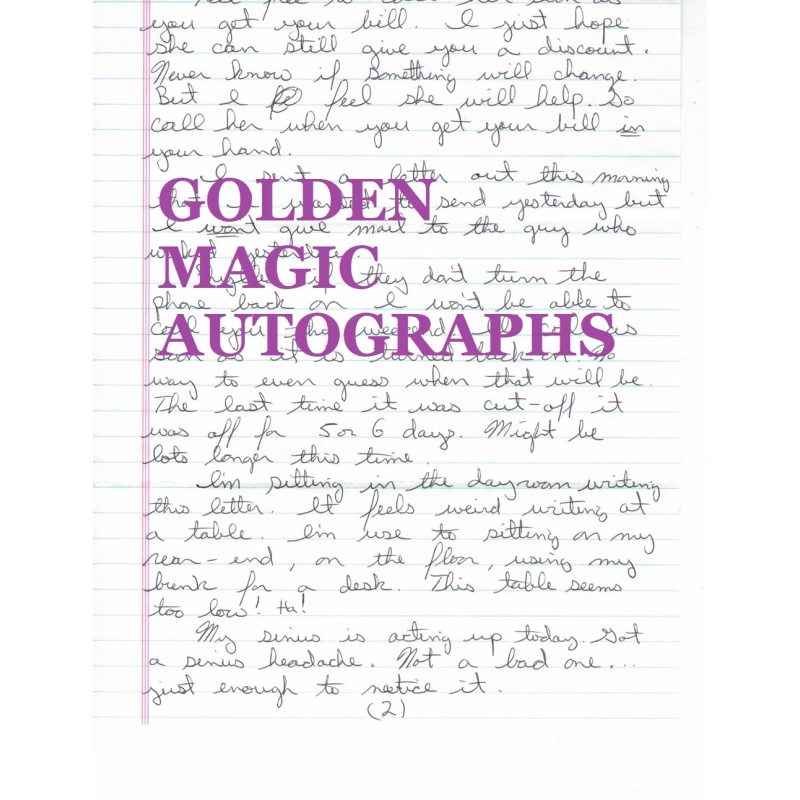 you get your bill. I just hope
she can still give you a discount.
Never know if something will change.
But I feel she will help. So
call her when you get your bill in
your hand.
I sent a letter out this morning
that I wanted to send yesterday but
I wont give mail to the guy who
yesterday.
GOLDEN
MAGIC
AUTOGRAPHS
if they don't turn the
phone back on I won't be able to
call you this weekend. as
soon as it is turned back on. No
way to even guess when that will be.
The last time it was cut-off it
was off for 5 or 6 days. Might be
lots longer this time.
I'm sitting in the dayroom writing
this letter. It feels weird writing at
a table. I'm use to sitting on my
rear-end, on the floor, using my
bunk for a desk. This table seems
too low! Ha!
My sinus is acting up today. Got
a sinus headache. Not a bad one...
just enough to notice it.
(2)